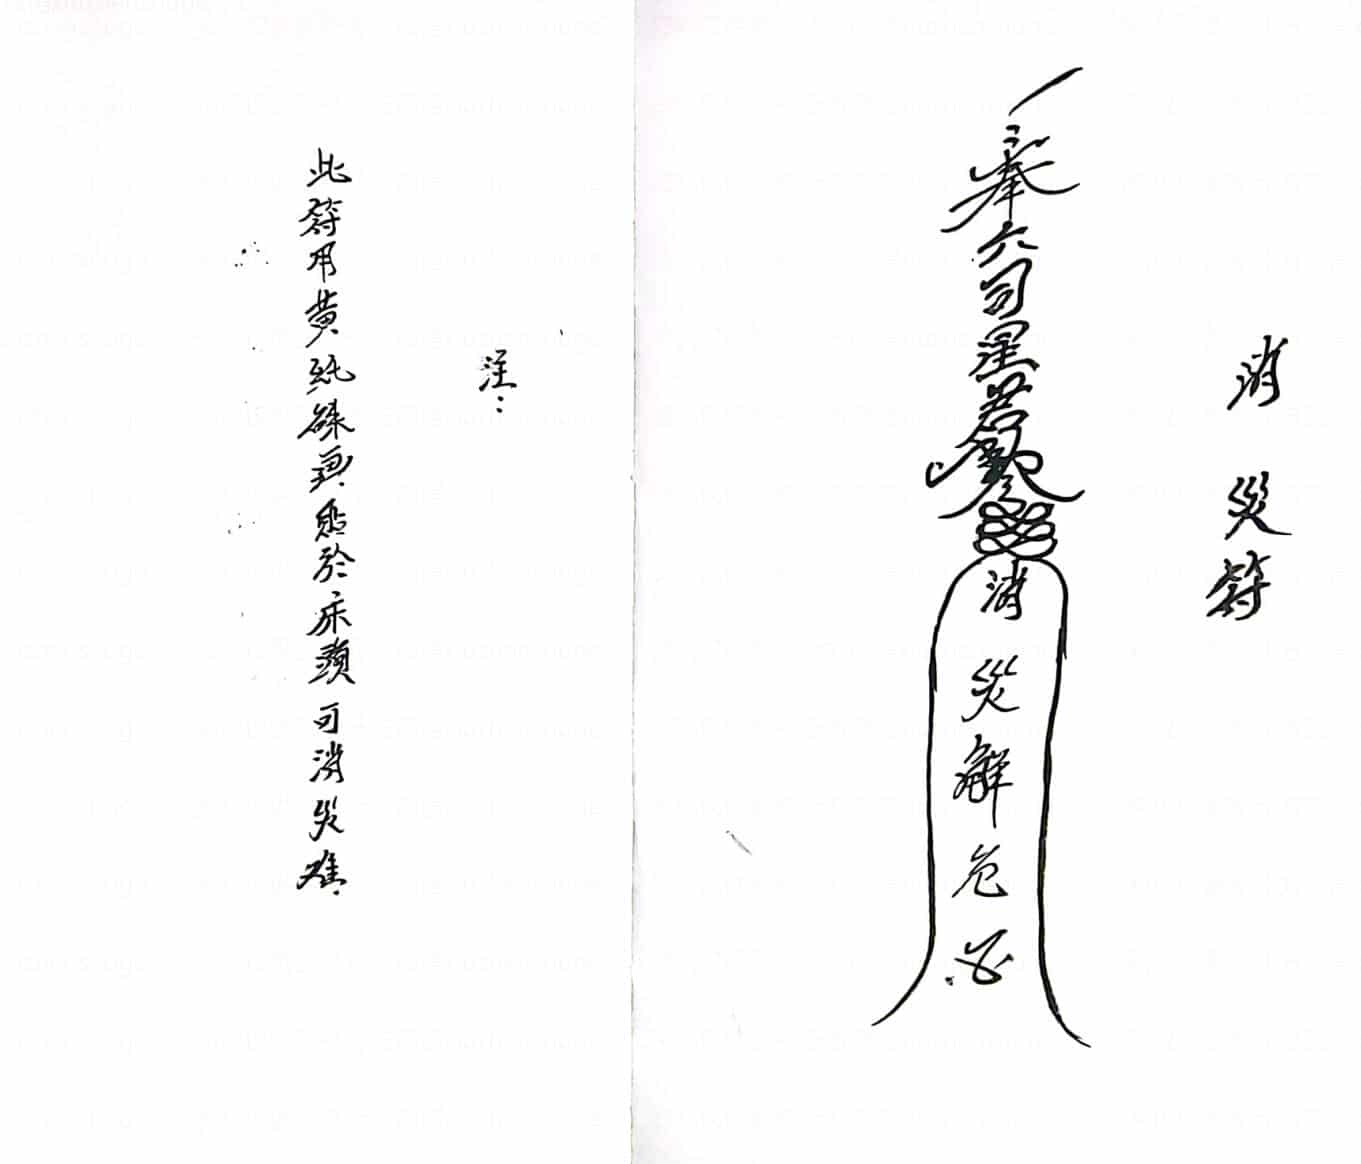 消災符
奉六司星君
消災解危
注：
此符用黃紙硃畫貼於床頭可消災难